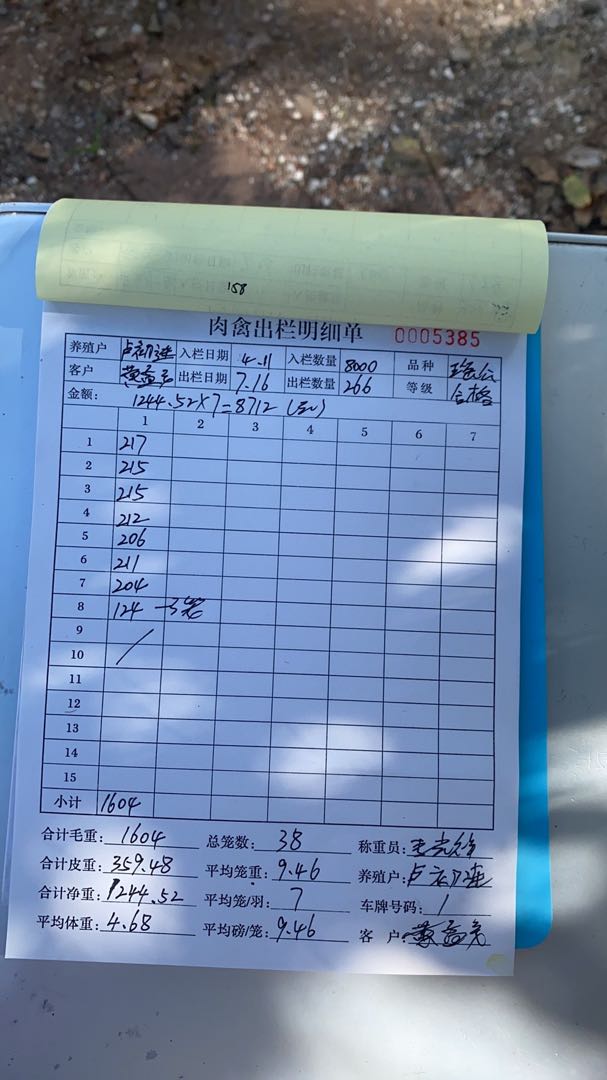 158
肉禽出栏明细单 0005385
养殖户 入栏日期 4.11 入栏数量 8000 品种
客户 黄 出栏日期 7.16 出栏数量 266 等级 合格
金额: 1244.52×7=8712
1 2 3 4 5 6 7
1 217
2 215
3 215
4 212
5 206
6 211
7 204
8 124 一3笼
9
10
11
12
13
14
15
小计 1604
合计毛重: 1604 总笼数: 38 称重员:
合计皮重: 359.48 平均笼重: 9.46 养殖户: 卢
合计净重: 1244.52 平均笼/羽: 7 车牌号码: 1
平均体重: 4.68 平均磅/笼: 9.46 客 户: 黄